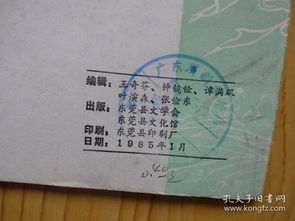 广东
编辑：王奇芬、钟镜铨、谭满矶
叶演森、张俭东
出版：东莞县文学会
东莞县文化馆
印刷：东莞县印刷厂
日期：1985年1月
0.40
孔夫子旧书网